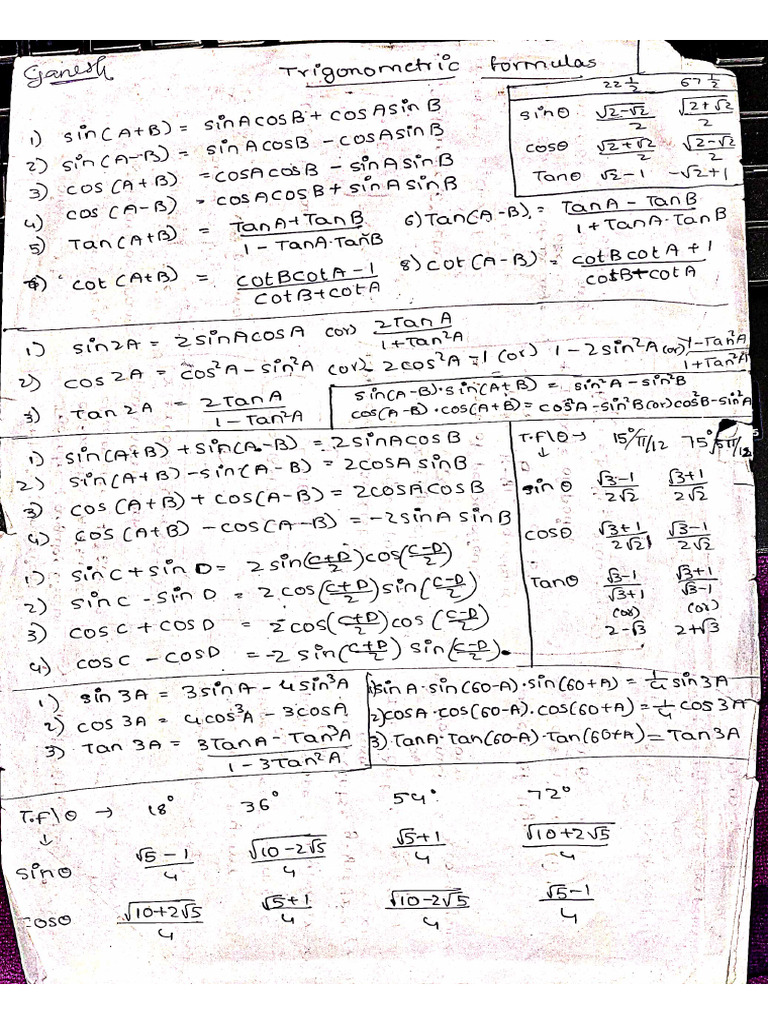 Ganesh
Trigonometric formulas
22 1/2 67 1/2
sinθ √(2-√2)/2 √(2+√2)/2
cosθ √(2+√2)/2 √(2-√2)/2
Tanθ √2-1 -√2+1
1) sin(A+B) = sinAcosB + cosAsinB
2) sin(A-B) = sinAcosB - cosAsinB
3) cos(A+B) = cosAcosB - sinAsinB
4) cos(A-B) = cosAcosB + sinAsinB
5) Tan(A+B) = (TanA+TanB)/(1-TanA·TanB) 6) Tan(A-B) = (TanA-TanB)/(1+TanA·TanB)
7) cot(A+B) = (cotBcotA-1)/(cotB+cotA) 8) cot(A-B) = (cotBcotA+1)/(cotB+cotA)
1) sin2A = 2sinAcosA (or) 2TanA/(1+Tan²A)
2) cos2A = cos²A-sin²A (or) 2cos²A-1 (or) 1-2sin²A (or) (1-Tan²A)/(1+Tan²A)
3) Tan2A = 2TanA/(1-Tan²A)
sin(A-B)·sin(A+B) = sin²A-sin²B
cos(A-B)·cos(A+B) = cos²A-sin²B (or) cos²B-sin²A
1) sin(A+B)+sin(A-B) = 2sinAcosB
2) sin(A+B)-sin(A-B) = 2cosAsinB
3) cos(A+B)+cos(A-B) = 2cosAcosB
4) cos(A+B)-cos(A-B) = -2sinAsinB
1) sinC+sinD = 2sin((C+D)/2)cos((C-D)/2)
2) sinC-sinD = 2cos((C+D)/2)sin((C-D)/2)
3) cosC+cosD = 2cos((C+D)/2)cos((C-D)/2)
4) cosC-cosD = -2sin((C+D)/2)sin((C-D)/2)
T.f\θ → 15°/π/12 75°/5π/12
↓
sinθ (√3-1)/2√2 (√3+1)/2√2
cosθ (√3+1)/2√2 (√3-1)/2√2
Tanθ (√3-1)/(√3+1) (√3+1)/(√3-1)
(or) (or)
2-√3 2+√3
1) sin3A = 3sinA-4sin³A
2) cos3A = 4cos³A-3cosA
3) Tan3A = (3TanA-Tan³A)/(1-3Tan²A)
1) sinA·sin(60-A)·sin(60+A) = 1/4 sin3A
2) cosA·cos(60-A)·cos(60+A) = 1/4 cos3A
3) TanA·Tan(60-A)·Tan(60+A) = Tan3A
T.f\θ → 18° 36° 54° 72°
↓
sinθ (√5-1)/4 √(10-2√5)/4 (√5+1)/4 √(10+2√5)/4
cosθ √(10+2√5)/4 (√5+1)/4 √(10-2√5)/4 (√5-1)/4